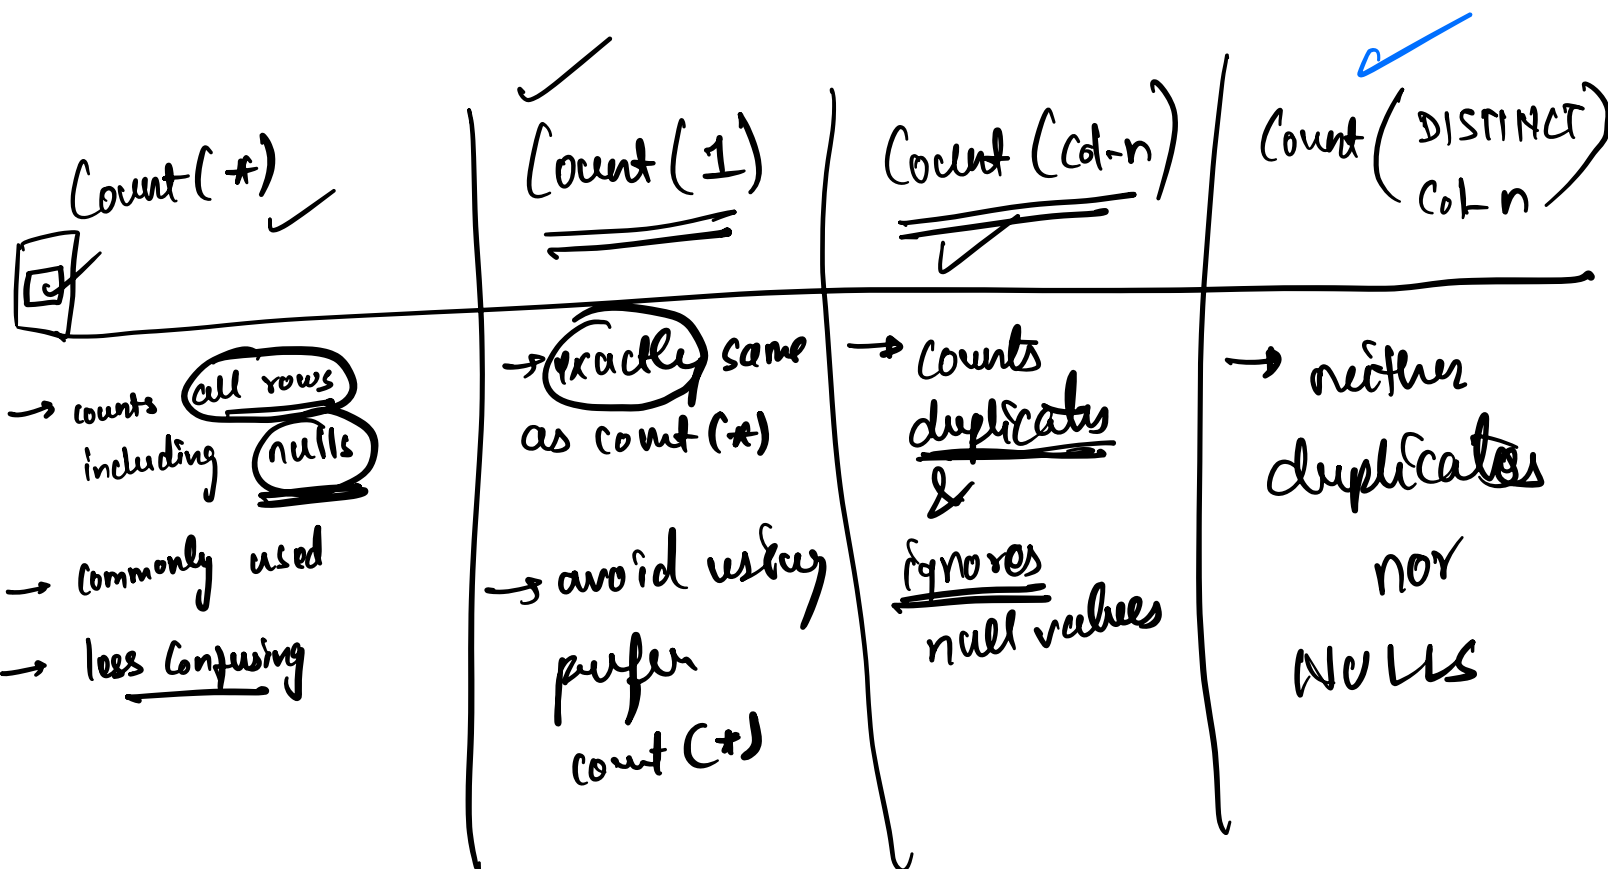 Count(*)
Count(1)
Count(col-n)
Count(DISTINCT
Col-n)
→ counts all rows
including nulls
→ commonly used
→ less confusing
→ exactly same
as count(*)
→ avoid using
prefer
count(*)
→ counts
duplicates
&
ignores
null values
→ neither
duplicates
nor
NULLS